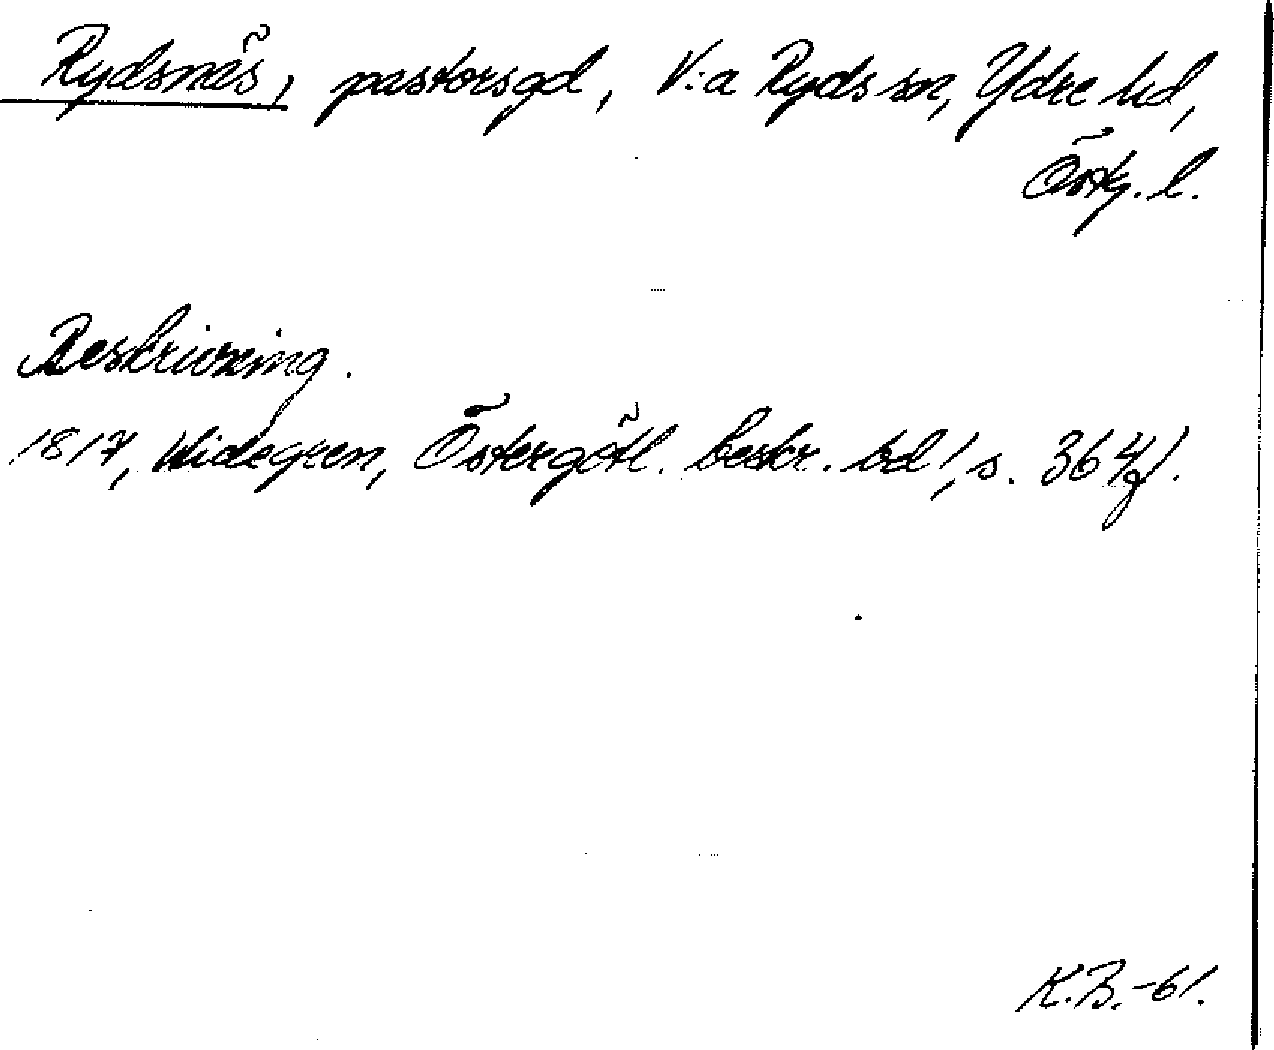 Rydsnäs, pastorsgd, V:a Ryds sn, Ydre hd,
Östg. l.
Beskrivning.
1817, Widegren, Östergötl. beskr. bd 1, s. 364 f.
K.B.-61.